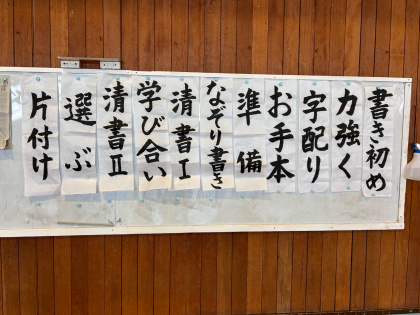 書き初め
力強く
字配り
お手本
準備
なぞり書き
清書Ⅰ
学び合い
清書Ⅱ
選ぶ
片付け